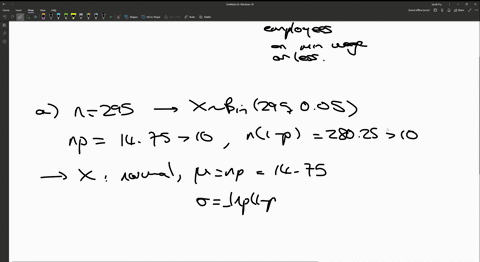 employees
on min wage
or less.
a) n=295 → X~Bin(295, 0.05)
np = 14.75 > 10 , n(1-p) = 280.25 > 10
→ X : normal, μ=np = 14.75
σ=√np(1-p